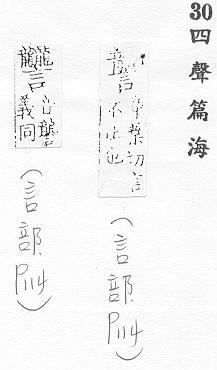 30 四聲篇海
章葉切言
不止也
(言部P114)
𧮩
音讋
義同
(言部P114)